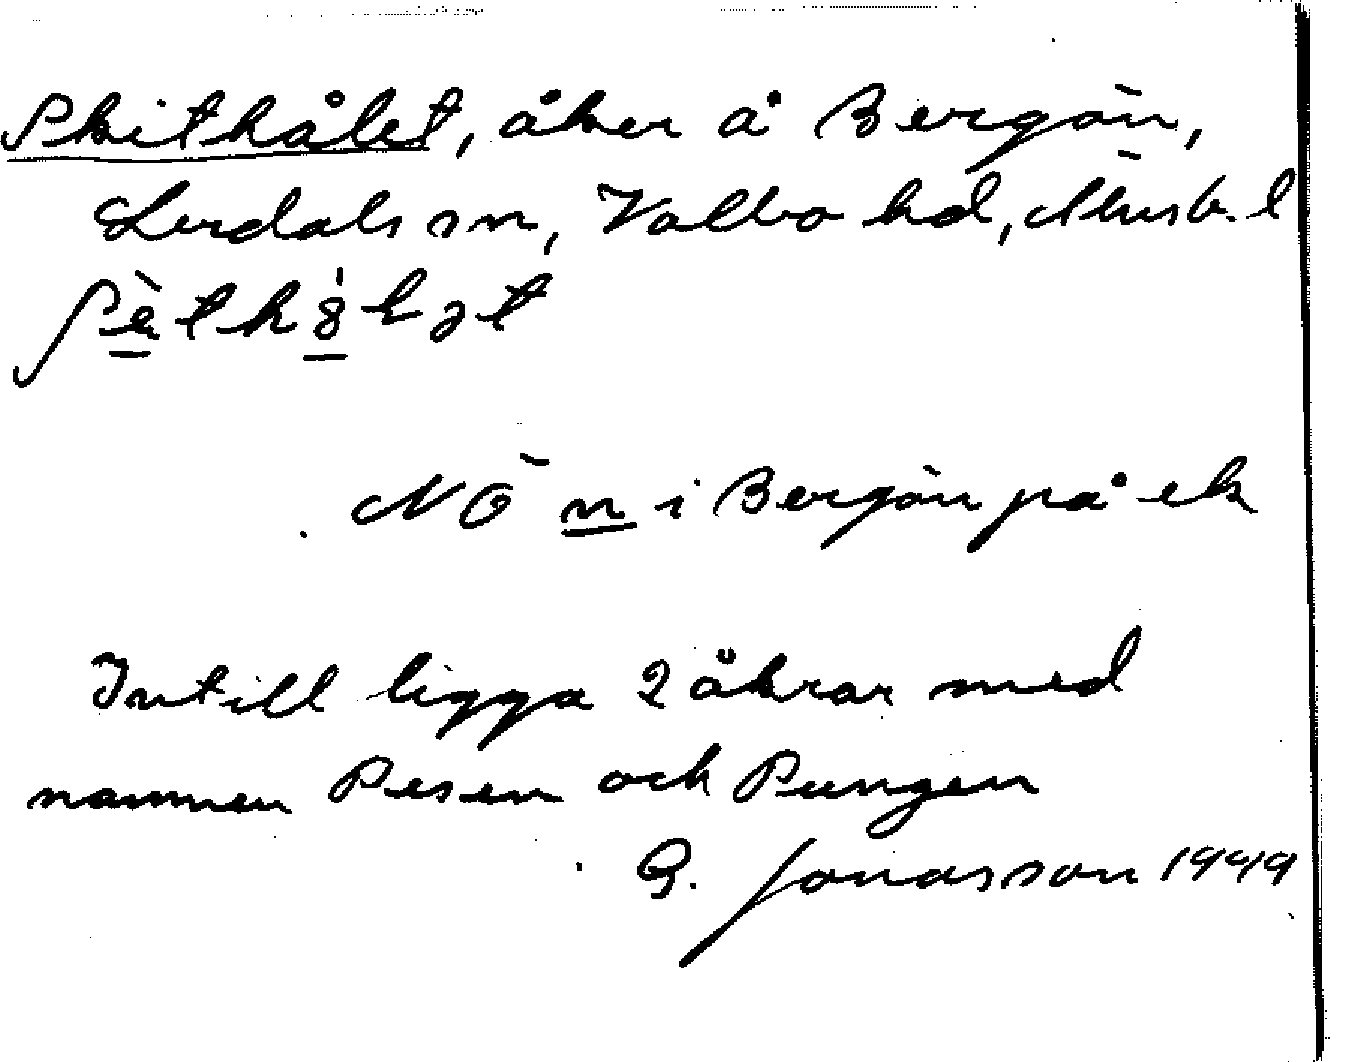 Skithålet, åker å Bergön,
Lerdals sn, Valbo hd, Älvsb. l
ʃèthȯ́lət
NÖ n i Bergön på ek
Intill ligga 2 åkrar med
namnen Pesen och Pungen
G. Jonasson 1949